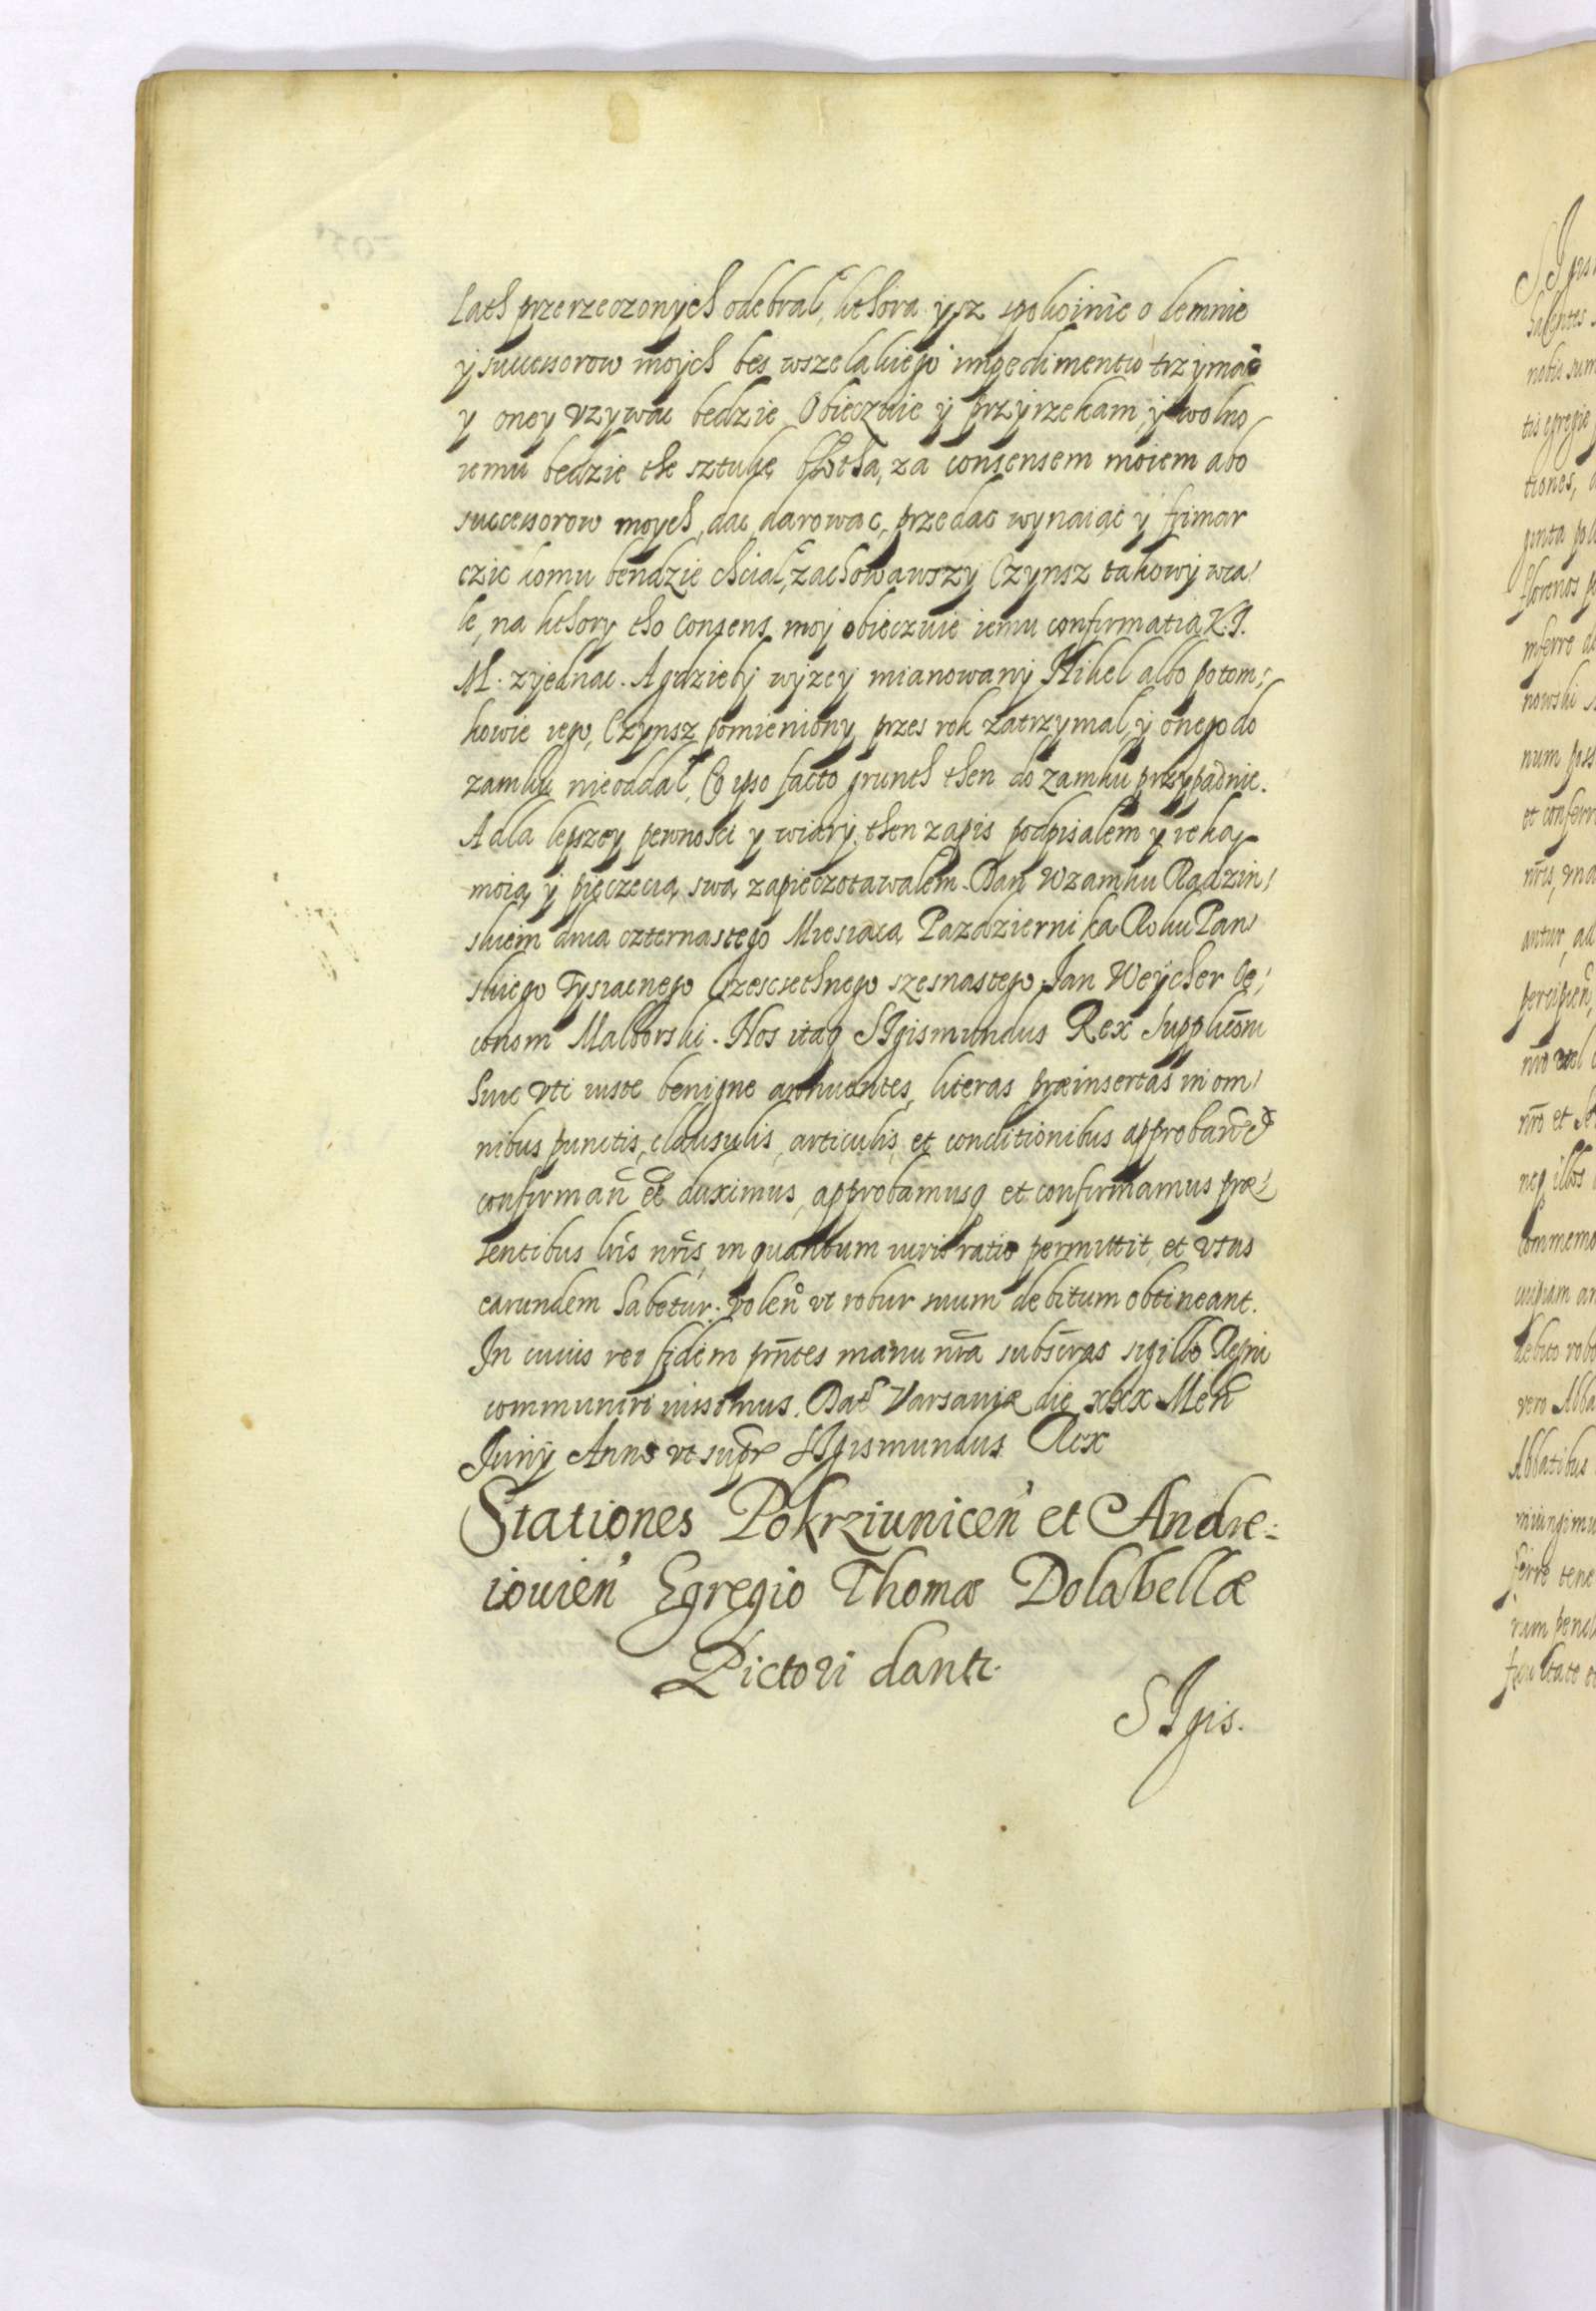 Lath przerzeczonych odebral, kthora ysz spokoinie odemnie
y successorow moych bes wszelakiego impedimentu trzymac
y oney vzywac bedzie Obieczuie y przyrzekam, y wolno
iemu bedzie the sztuke błotha, za consensem moiem abo
successorow moych, dac darowac, przedac wynaiąc y frimar
czic komu bendzie chcial, zachowawszy Czynsz takowy wca/
le, na kthory tho Consens moy obieczuie iemu confirmatią K. J.
M. zyednac. A gdzieby wyzey mianowany Nikel albo potom/
kowie iego, Czynsz pomieniony przes rok zatrzymal, y onego do
zamku nieoddal, Eo ipso facto grunth then do zamku przypadnie.
A dla lepszey pewnosci y wiary, then zapis podpisalem y ręką
moią y pięczecią swą zapieczotawalem. Dan w zamku Radzin/
skiem dnia czternastego Miesiaca Pazdziernika Roku Pan/
skiego Tysiacnego Szescsethnego szesnastego. Jan Weycher Oe/
conom Malborski. Nos itaq SIgismundus Rex supplicõni
huic vti iuste benigne annuentes, literas præinsertas in om/
nibus punctis, clausulis, articulis, et conditionibus approban̄ et
confirman̄ eẽ duximus, approbamusq et confirmamus præ/
sentibus lris nris, in quantum iuris ratio permittit, et vsus
earundem habetur. volen̄ vt robur suum debitum obtineant.
In cuius rei fidem pn̄tes manu nrã subscras sigillo Regni
communiri iussimus. Dat Varsaviæ die xxx Men̄
Juny Anno vt supr SIgismundus Rex
Stationes Pokrziunicen̄ et Andre:
iouien̄ Egregio Thomæ Dolabellæ
Pictori dantr.
SIgis.